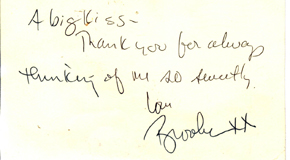 A big Kiss -
Thank you for always
thinking of me so sweetly.
Love
Brooke XX